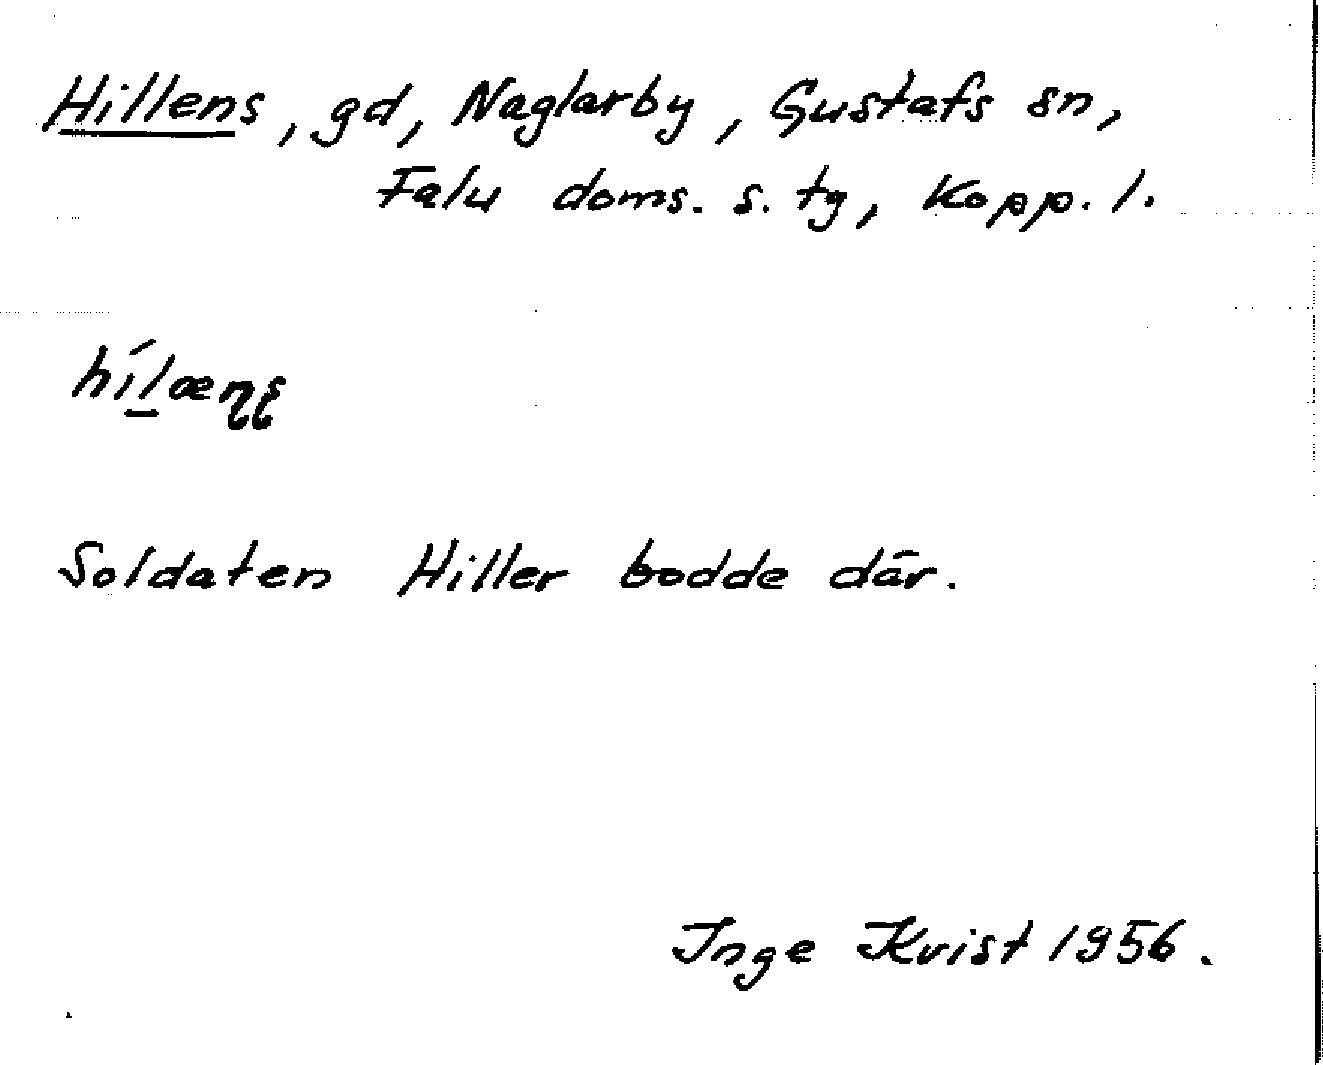 Hillens, gd, Naglarby, Gustafs sn,
Falu doms. s. tg, Kopp. l.
híl̲æɳʂ
Soldaten Hiller bodde där.
Inge Kvist 1956.